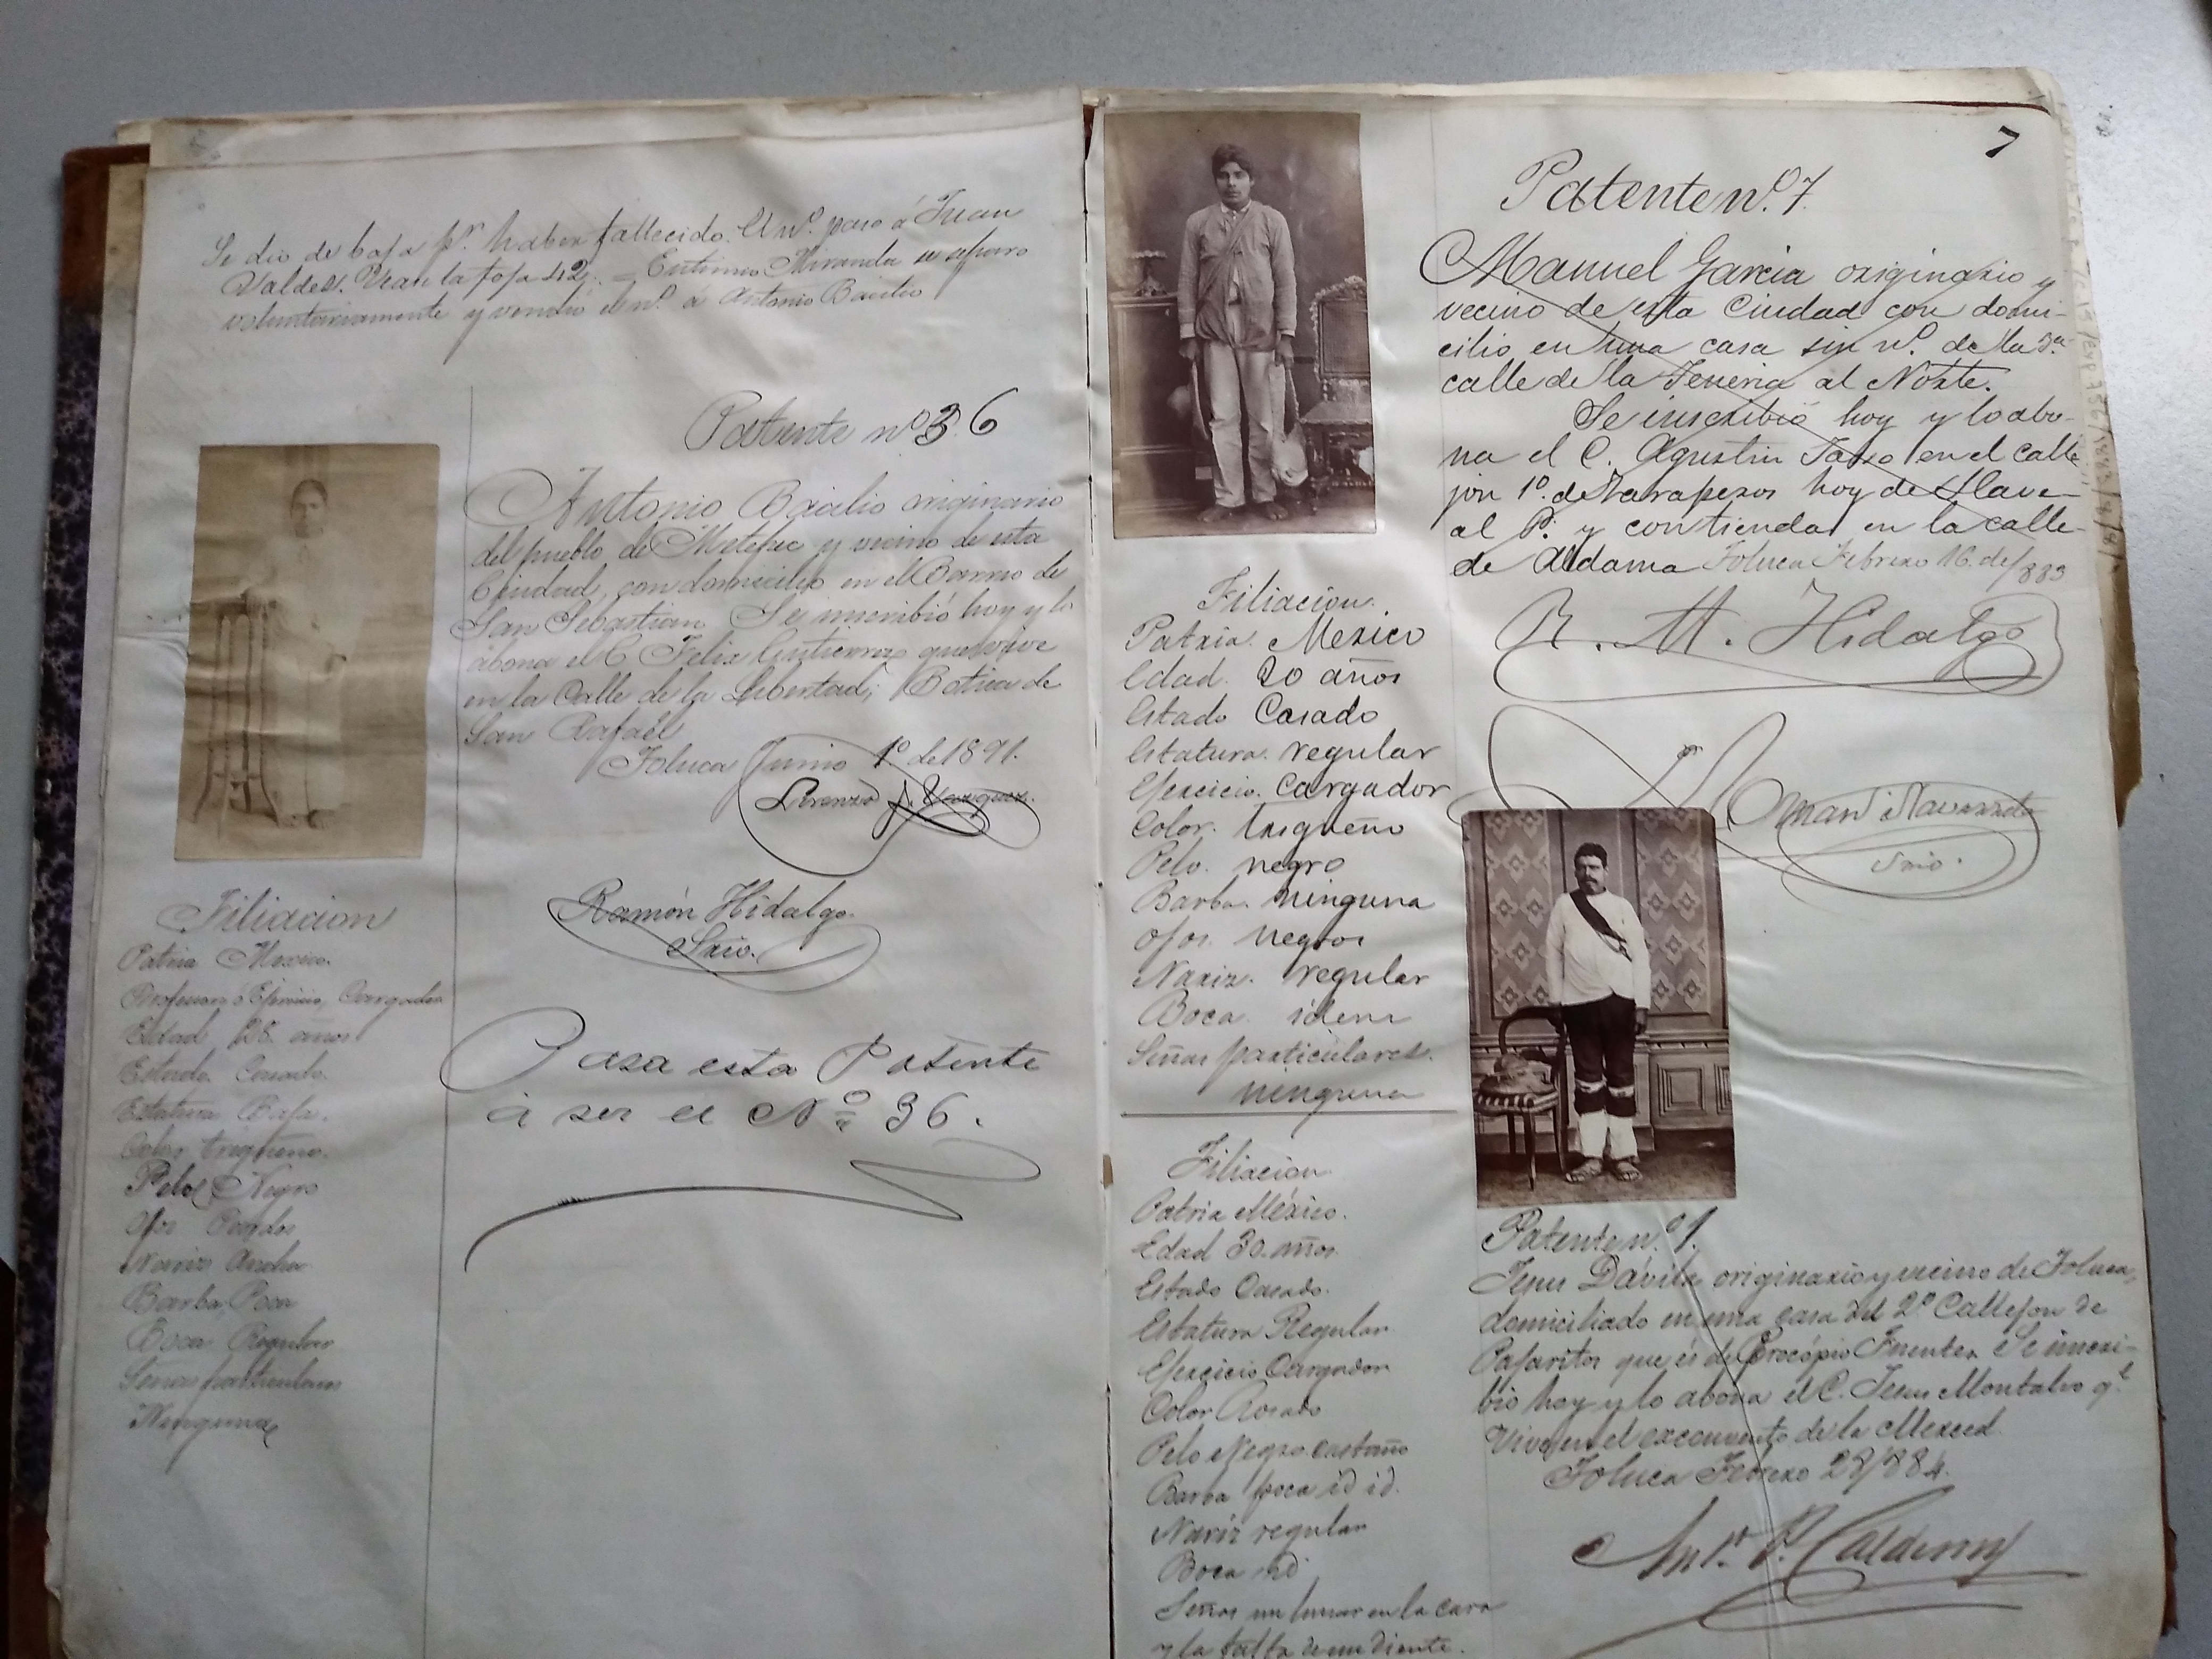 Se dio de baja pr. haber fallecido. El nº. paso á Juan
Valdes. Vease la foja 42. = Eutimio Miranda se separo
voluntariamente y vendió el nº. á Antonio Basilio
Patente nº 36
Antonio Basilio originario
del pueblo de Metepec y vecino de esta
Ciudad, con domicilio en el Barrio de
San Sebastian. Se inscribió hoy y lo
abona el C. Felix Gutierrez que vive
en la Calle de la Libertad, Botica de
San Rafael
Toluca Junio 1º. de 1891.
Lorenzo J. Vazquez.
Ramón Hidalgo.
Srio.
Pasa esta Patente
á ser el Nº 36.
Filiacion
Patria Mexico.
Profesion ó Ejercicio, Cargador
Edad 28 años
Estado Casado.
Estatura Baja.
Color trigueño.
Pelo Negro
Ojos Pardos
Nariz Ancha
Barba, Poca
Boca Regular
Señas particulares
Ninguna
7
Patente nº. 7.
Manuel Garcia originario y
vecino de esta Ciudad con domi-
cilio en una casa sin nº. de la 3a.
calle de la Teneria al Norte.
Se inscribió hoy y lo abo-
na el C. Agustin en el calle
jon 1º. de Zarapezos hoy de
al P. y con tienda en la calle
de Aldama Toluca Febrero 16. de/883
R. M. Hidalgo
Navarrete
Srio.
Filiacion.
Patria. Mexico
Edad. 20 años
Estado Casado
Estatura. regular
Ejercicio. Cargador
Color. trigueño
Pelo. negro
Barba. ninguna
Ojos. negros
Nariz. regular
Boca. idem
Señas particulares.
ninguna
Filiacion
Patria México.
Edad 30. años.
Estado Casado.
Estatura Regular.
Ejercicio Cargador
Color Rosado
Pelo Negro castaño
Barba poca id id.
Nariz regular
Boca id
Señas un lunar en la cara
y la falta de un diente.
Patente nº.
Jesus Dávila originario y vecino de Toluca,
domiciliado en una casa del 2º. Callejon de
Pajaritos que és de Procópio Fuentes. Se inscri-
bio hoy y lo abona el C. Jesus Montalvo qe.
vive en el exconvento de la Merced.
Toluca Febrero 28/884.
Anto. P. Calderon